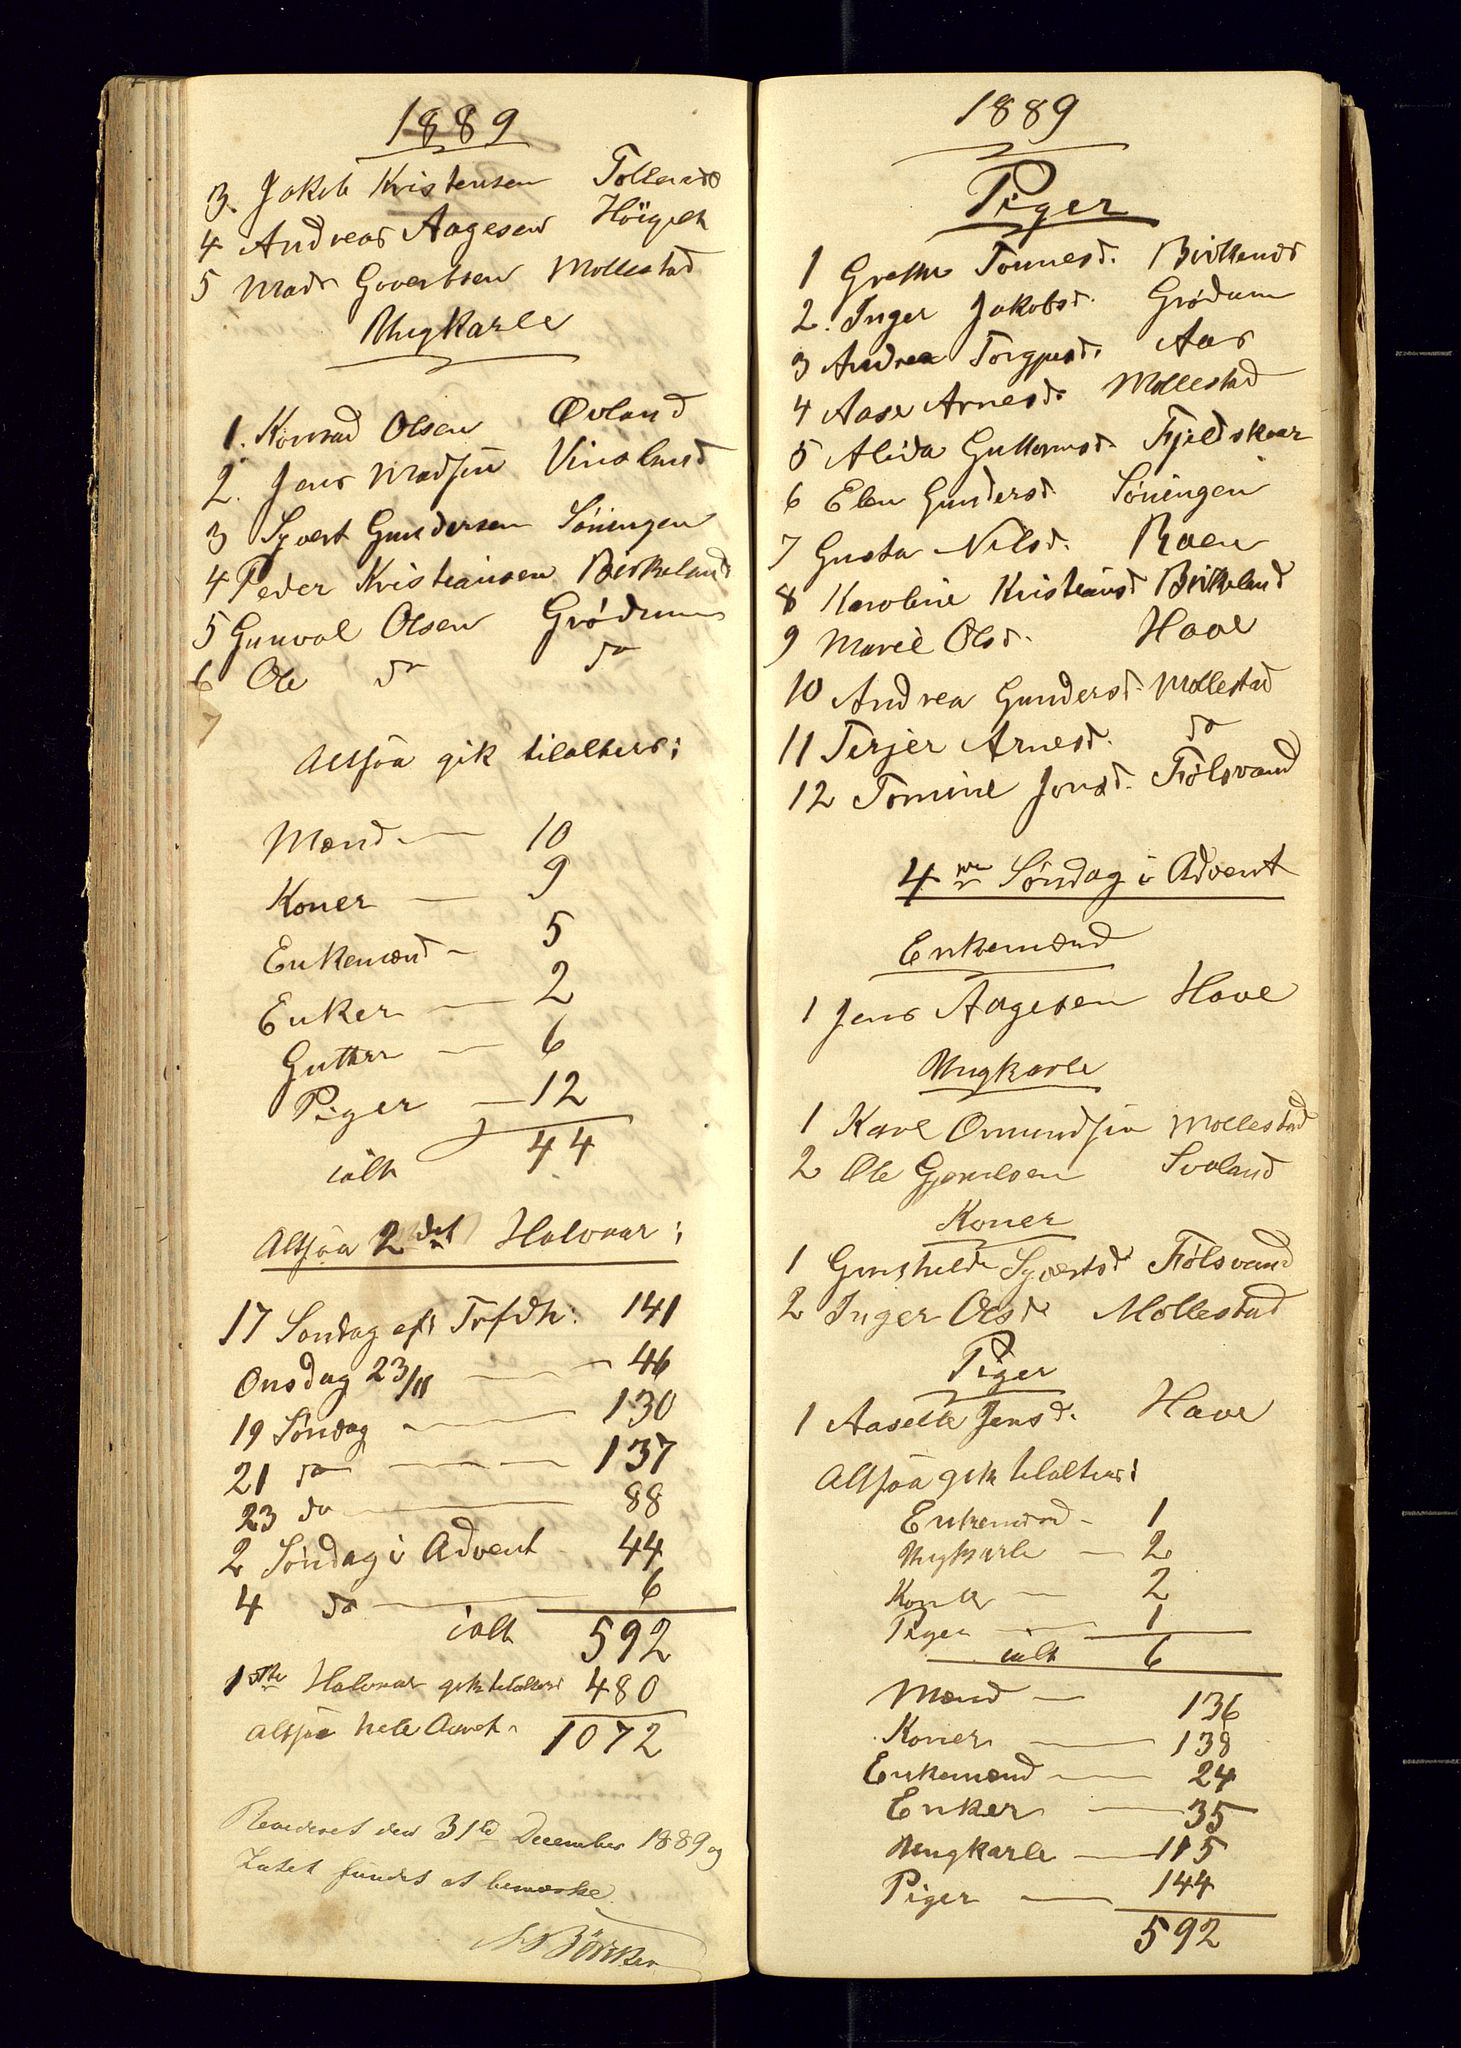 1889
3. Jakob Kristensen Tolland
4 Andreas Aagesen
5 Mads Govertsen Mollestad
Ungkarle
1. Konrad Olsen Øvland
2. Jens Madsen Vinaland
3 Syvert Gundersen Søningen
4 Peder Kristiansen Birkeland
5 Gunval Olsen Grødum
6 Ole do do
7
Altsaa gik tilalters:
Mænd — 10
Koner — 9
Enkemænd — 5
Enker — 2
Gutter — 6
Piger — 12
ialt 44
Altsaa 2det Halvaar:
17 Søndag eft Trfdh: 141
Onsdag 23/11 — 46
19 Søndag — 130
21 do — 137
23 do — 88
2 Søndag i Advent — 44
4 do — 6
ialt 592
1ste Halvaar gik tilalters 480
Altsaa hele Aaret 1072
Revideret den 31te December 1889 og
Intet fundet at bemærke.
1889
Piger
1 Grethe Tonnesd. Birkeland
2. Inger Jakobsd. Grødum
3 Andrea Torgjusd. Aas
4 Aase Arnesd. Mollestad
5 Alida Guttormsd. Fjeldskaar
6 Elen Gundersd. Søningen
7 Gusta Nilsd. Roen
8 Karoline Kristiansd Birkeland
9 Marie Olsd. Have
10 Andrea Gundersd. Mollestad
11 Terjer Arnesd. do
12 Tomine Jensd. Følsvand
4de Søndag i Advent
Enkemænd
1 Jens Aagesen Have
Ungkarle
1 Karl Omundsen Mollestad
2 Ole Gjerulsen Svaland
Koner
1 Gunhild Syvertsd Følsvand
2 Inger Olsd Mollestad
Piger
1 Aaselle Jensd. Have
Altsaa gik tilalters:
Enkemænd — 1
Ungkarle — 2
Koner — 2
Piger — 1
ialt 6
Mænd — 136
Koner — 138
Enkemænd — 24
Enker — 35
Ungkarle — 115
Piger — 144
592